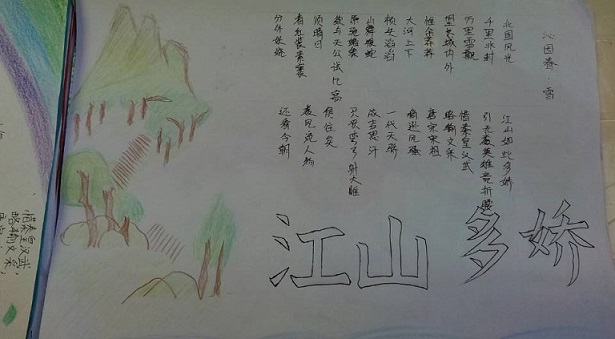 沁园春·雪
北国风光
千里冰封
万里雪飘
望长城内外
惟余莽莽
大河上下
顿失滔滔
山舞银蛇
原驰蜡象
欲与天公试比高
须晴日
看红装素裹
分外妖娆
江山如此多娇
引无数英雄竞折腰
惜秦皇汉武
略输文采
唐宗宋祖
稍逊风骚
一代天骄
成吉思汗
只识弯弓射大雕
俱往矣
数风流人物
还看今朝
江山多娇
惜秦皇汉武,
略输文采,